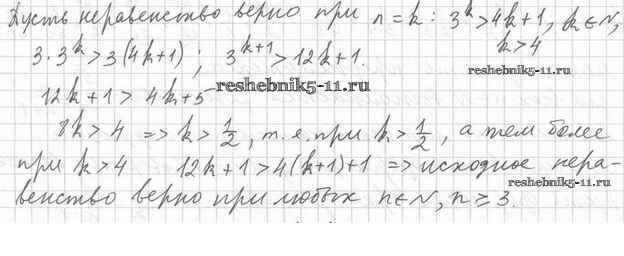 Пусть неравенство верно при n = k : 3^k > 4k+1, k ∈ N,
k > 4
3·3^k > 3(4k+1) ; 3^{k+1} > 12k+1.
reshebnik5-11.ru
reshebnik5-11.ru
12k+1 > 4k+5
8k > 4 => k > 1/2, т.е. при k > 1/2, а тем более
при k > 4 12k+1 > 4(k+1)+1 => исходное нера-
reshebnik5-11.ru
венство верно при любых n∈N, n ≥ 3.